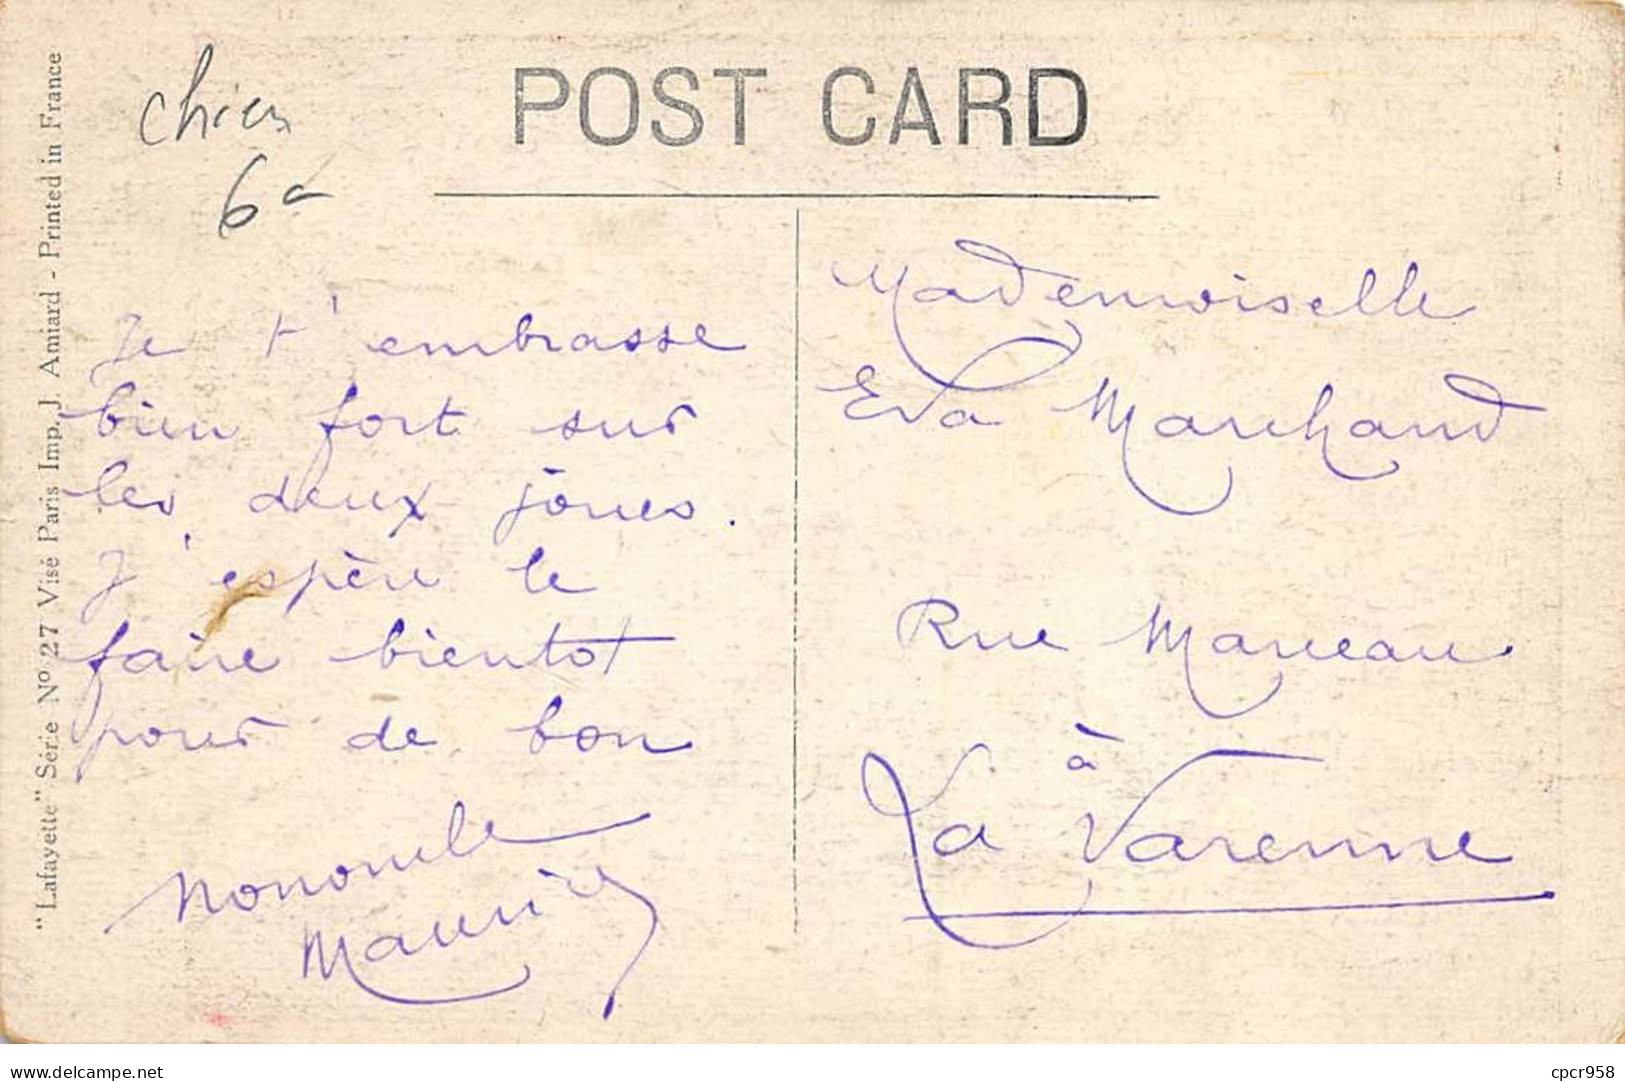 POST CARD
chien
6
"Lafayette" Série No 27 Visé Paris Imp. J. Amiard - Printed in France
Je t'embrasse
bien fort sur
les deux joues.
J'espère le
faire bientot
pour de bon
Nononcle
Maurice
Mademoiselle
Eva Marchand
Rue Marceau
à
La Varenne
delcampe.net
cpcr958